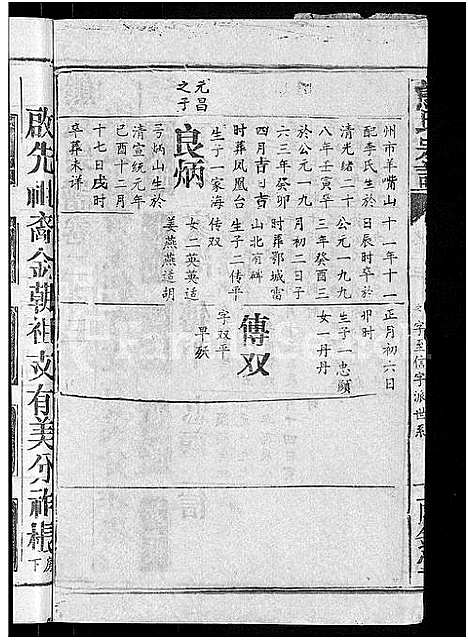 之字至信字派世系
州市羊嘴山
配李氏生於
清光绪二十
八年壬寅卒
於公元一九
六三年癸卯
四月吉日吉
时葬凤凰台
生子一家海
元昌
之子
良炳
号炳山生於
清宣统元年
己酉十二月
十七日戌时
卒葬未详
十一年十一
日辰时卒於
公元一九九
三年癸酉三
月初二日子
时葬鄂城雷
山北
生子二传平
传双
女二英英适
姜燕燕适胡
正月初六日
卯时
生子一忠颢
女一丹丹
傳双
字双平
早殁
啟先祖裔金朝祖支有美公
下房